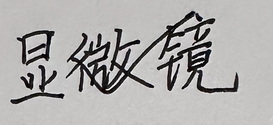 显微镜